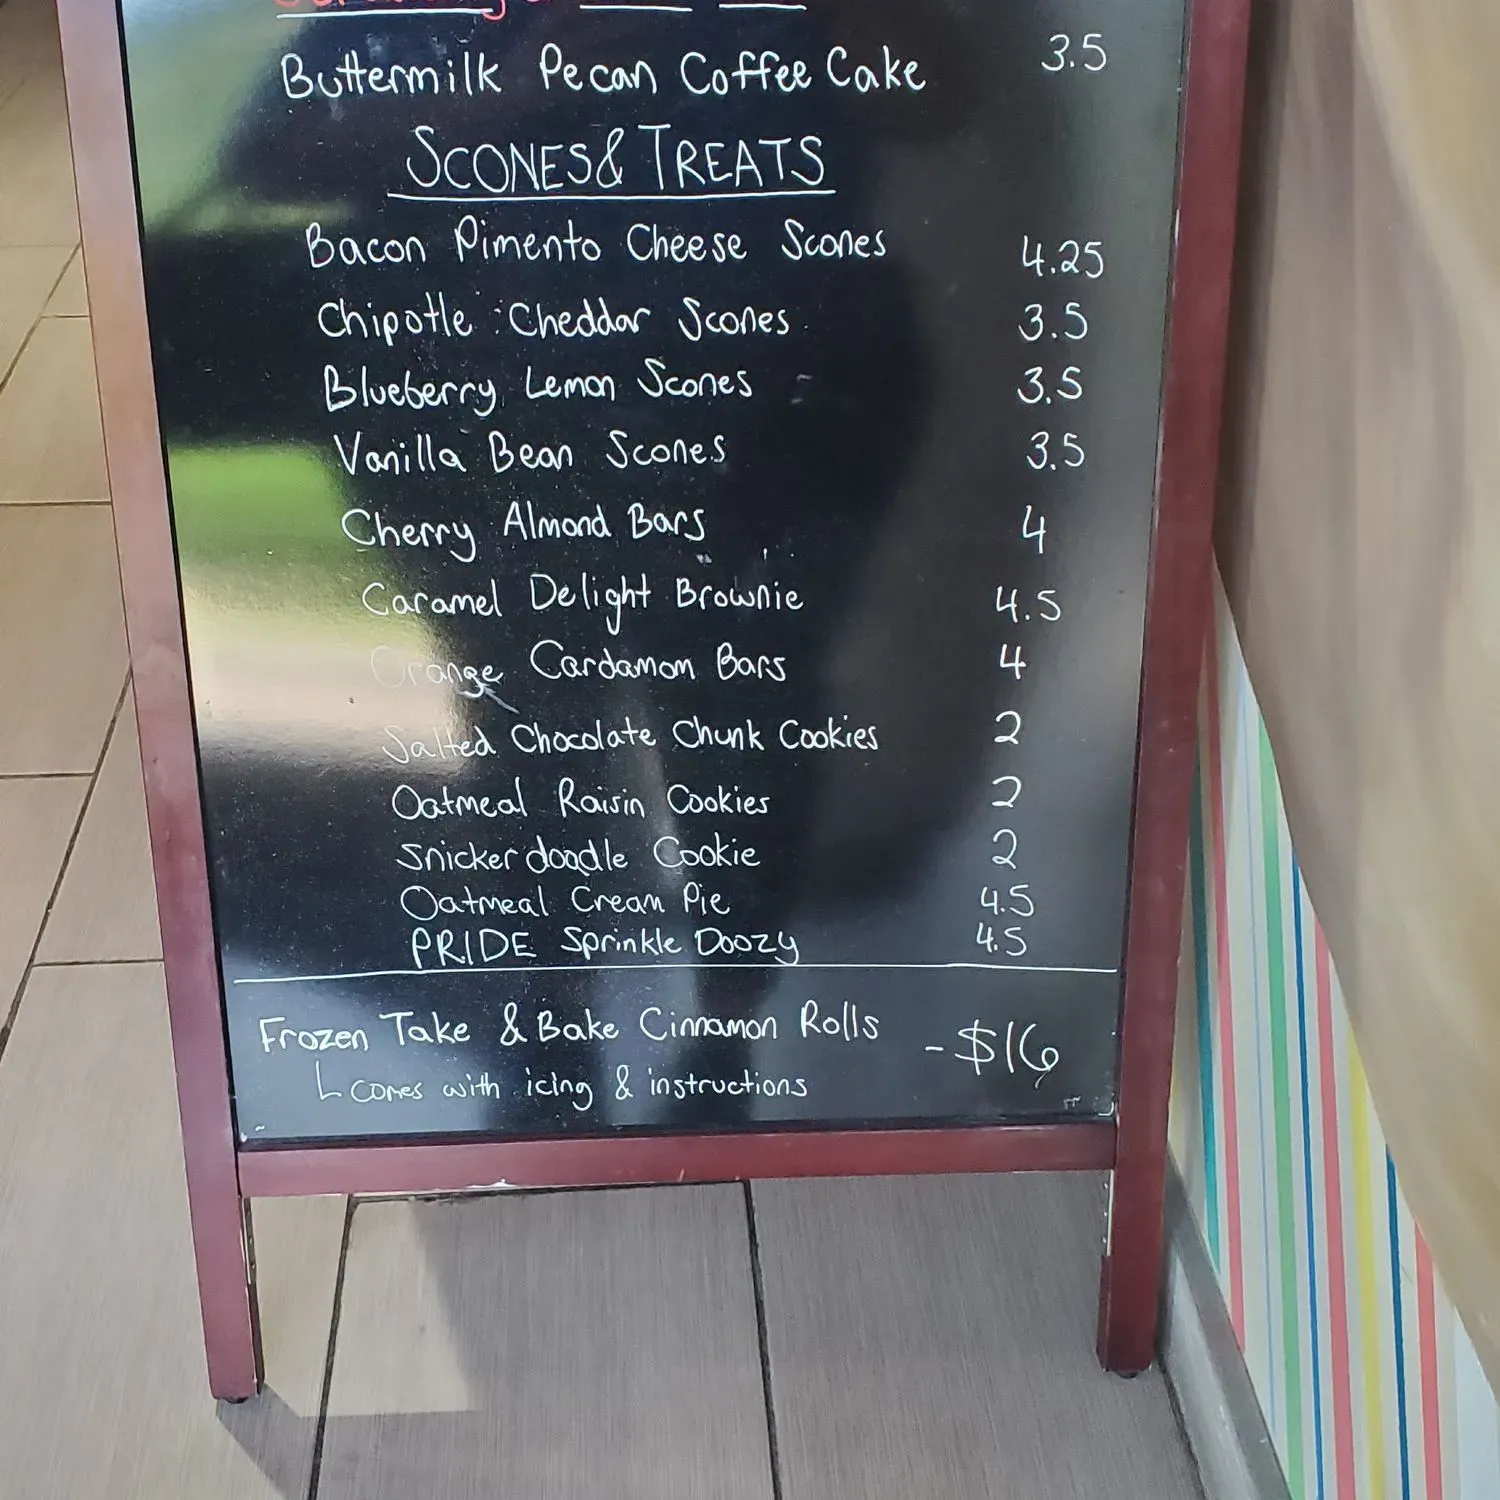 Buttermilk Pecan Coffee Cake 3.5
SCONES & TREATS
Bacon Pimento Cheese Scones 4.25
Chipotle Cheddar Scones 3.5
Blueberry Lemon Scones 3.5
Vanilla Bean Scones 3.5
Cherry Almond Bars 4
Caramel Delight Brownie 4.5
Orange Cardamom Bars 4
Salted Chocolate Chunk Cookies 2
Oatmeal Raisin Cookies 2
Snickerdoodle Cookie 2
Oatmeal Cream Pie 4.5
PRIDE Sprinkle Doozy 4.5
Frozen Take & Bake Cinnamon Rolls - $16
comes with icing & instructions